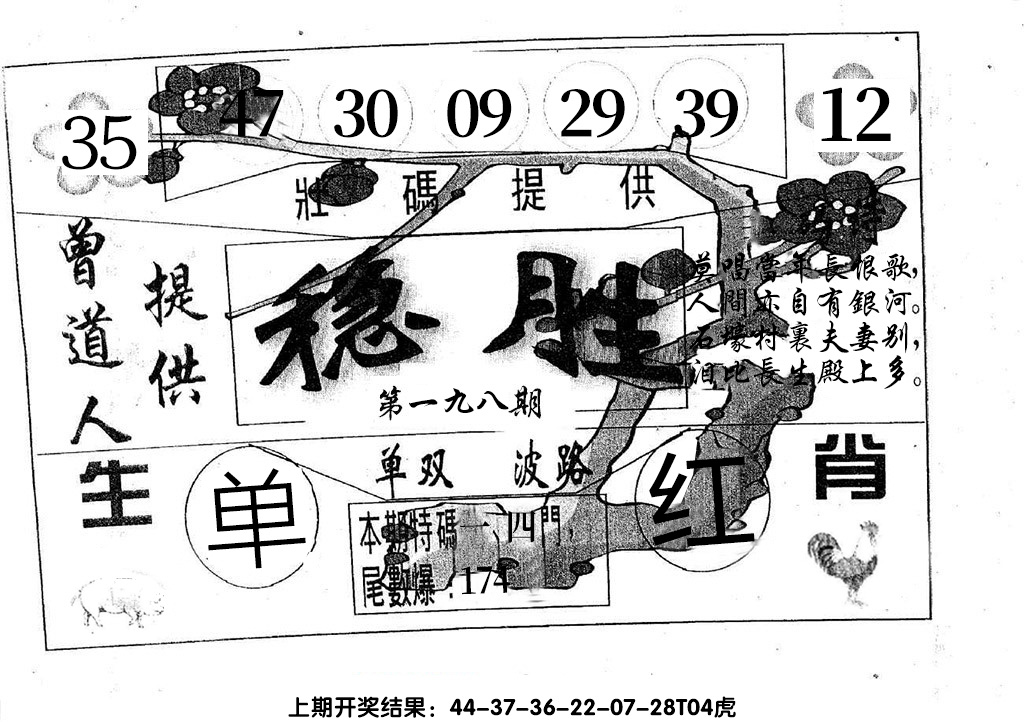 35 47 30 09 29 39 12
壯碼提供
特
曾道人
提供
稳胜
第一九八期
莫唱當年長恨歌，
人間亦自有銀河。
石壕村裏夫妻别，
泪比長生殿上多。
单双 波路
生肖
单
红
本期特碼一、四門，
尾數爆：174
上期开奖结果：44-37-36-22-07-28T04虎